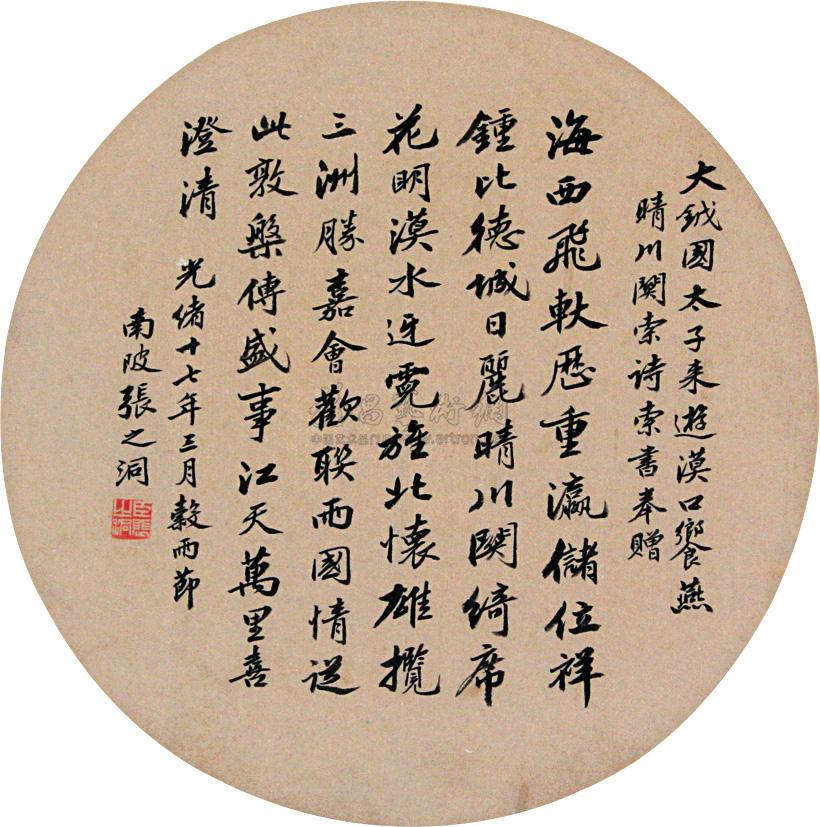 大鉞國太子来遊漢口饗燕
晴川閣索诗索書奉贈
海西飛軼歷重瀛儲位祥
鍾比德城日麗晴川開綺席
花明漢水迓霓旌北懷雄攬
三洲勝嘉會歡聯兩國情從
此敦槃傳盛事江天萬里喜
澄清
光绪十七年三月穀雨節
南陂張之洞